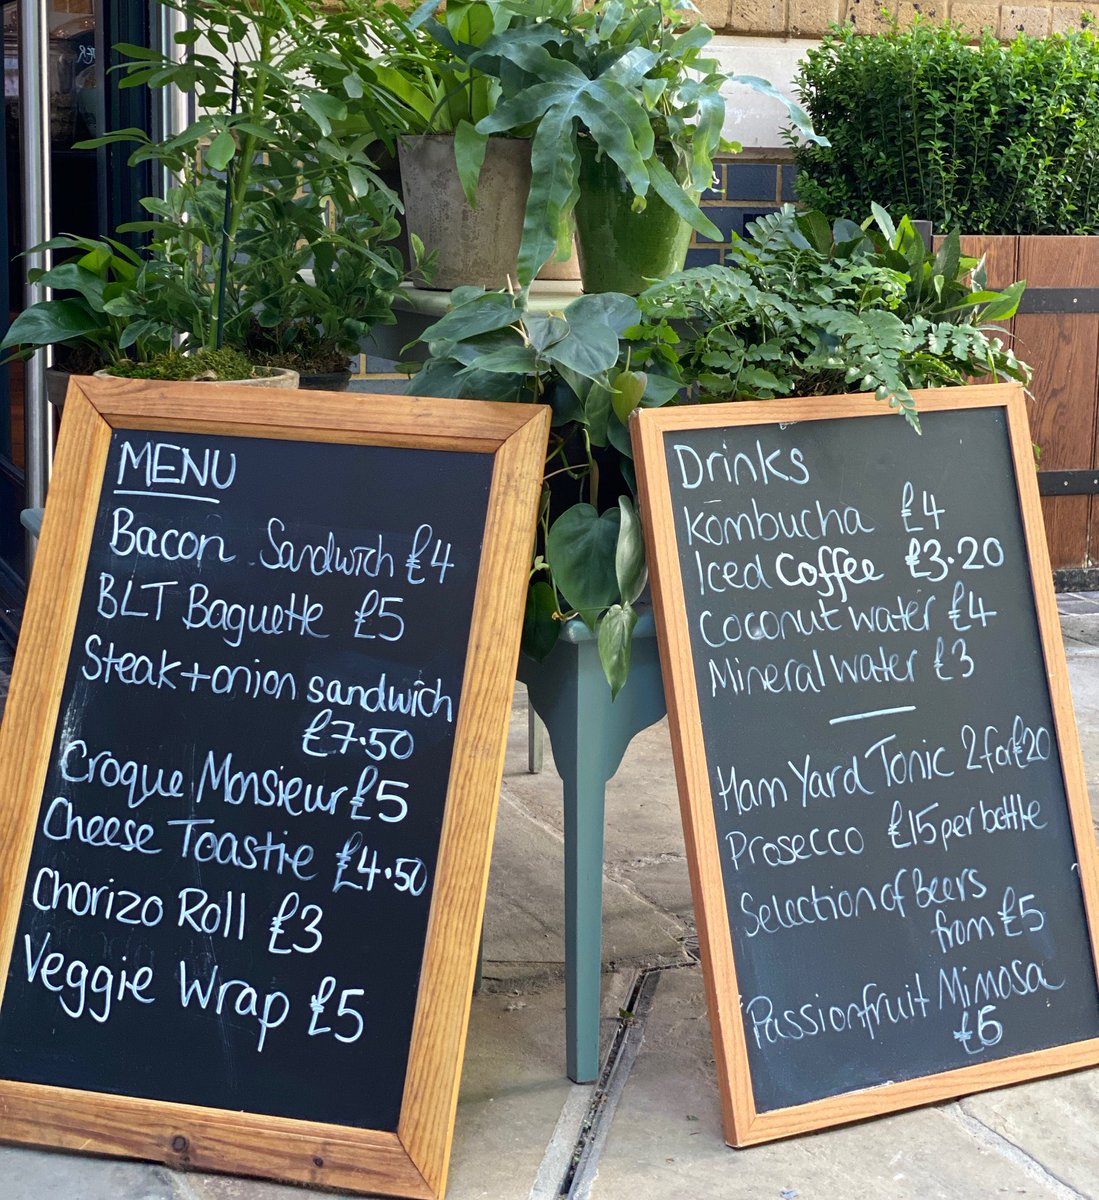 MENU
Bacon Sandwich £4
BLT Baguette £5
Steak + onion sandwich
£7.50
Croque Monsieur £5
Cheese Toastie £4.50
Chorizo Roll £3
Veggie Wrap £5
Drinks
Kombucha £4
Iced Coffee £3.20
Coconut water £4
Mineral water £3
Ham Yard Tonic 2 for £20
Prosecco £15 per bottle
Selection of Beers
from £5
Passionfruit Mimosa
£5